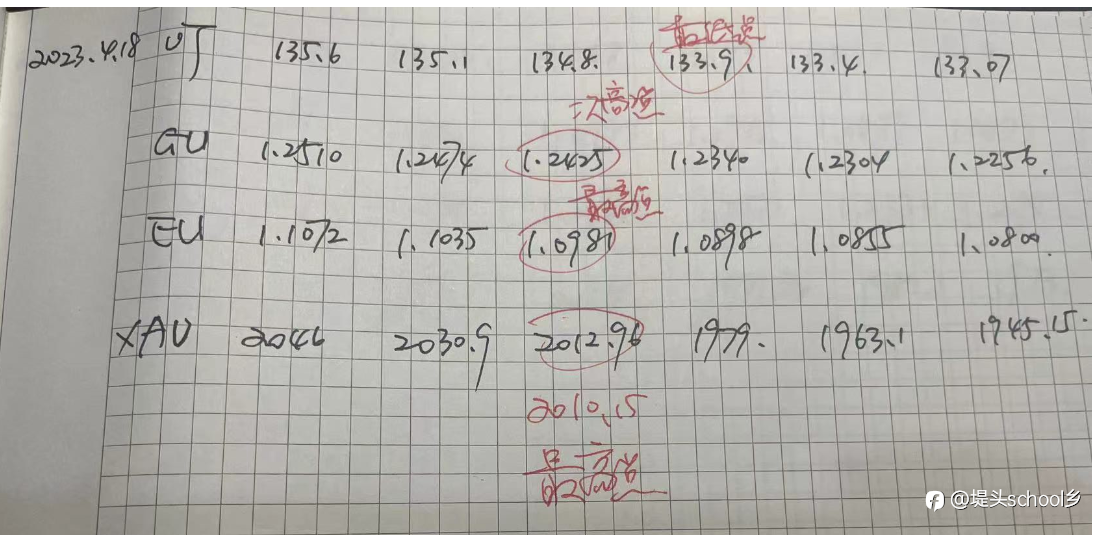 最低点
2023.4.18 UJ 135.6 135.1 134.8. 133.9. 133.4. 133.07
二次高点
GU 1.2510 1.2474 1.2425 1.2340 1.2304 1.2256.
最高点
EU 1.1072 1.1035 1.0981 1.0898 1.0855 1.0800.
XAU 2046 2030.9 2012.96 1979. 1963.1 1945.15.
2010.15
最高点
@堤头school乡